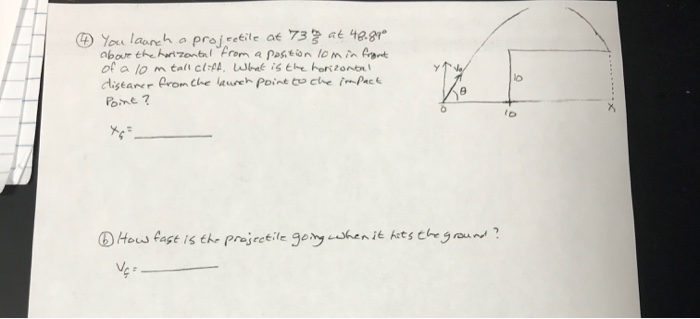 ④ You launch a projectile at 73 m/s at 48.89°
above the horizontal from a position 10 m in front
of a 10 m tall cliff. What is the horizontal
distance from the launch point to the impact
Point?
x_f = ______
y v₀
θ
10
0 10 x
ⓑ How fast is the projectile going when it hits the ground?
V_f = ______